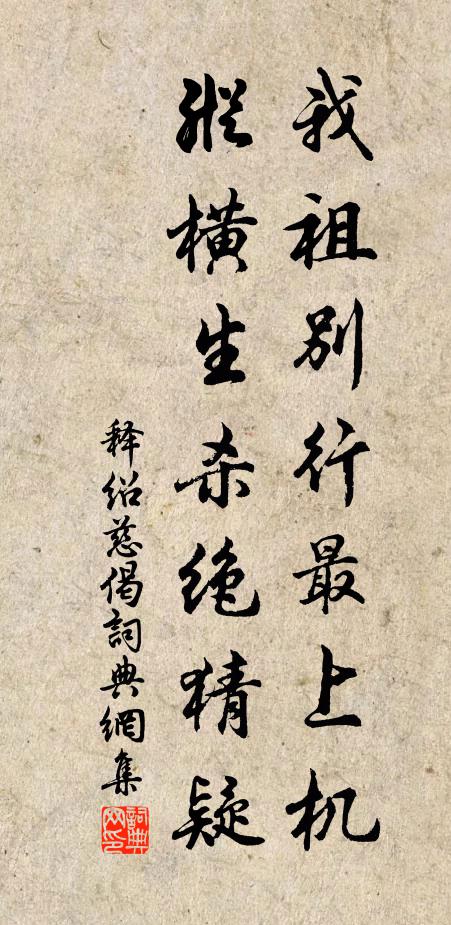 我祖别行最上机
縱橫生杀绝猜疑
释绍慈偈詞典網集
詞典网印